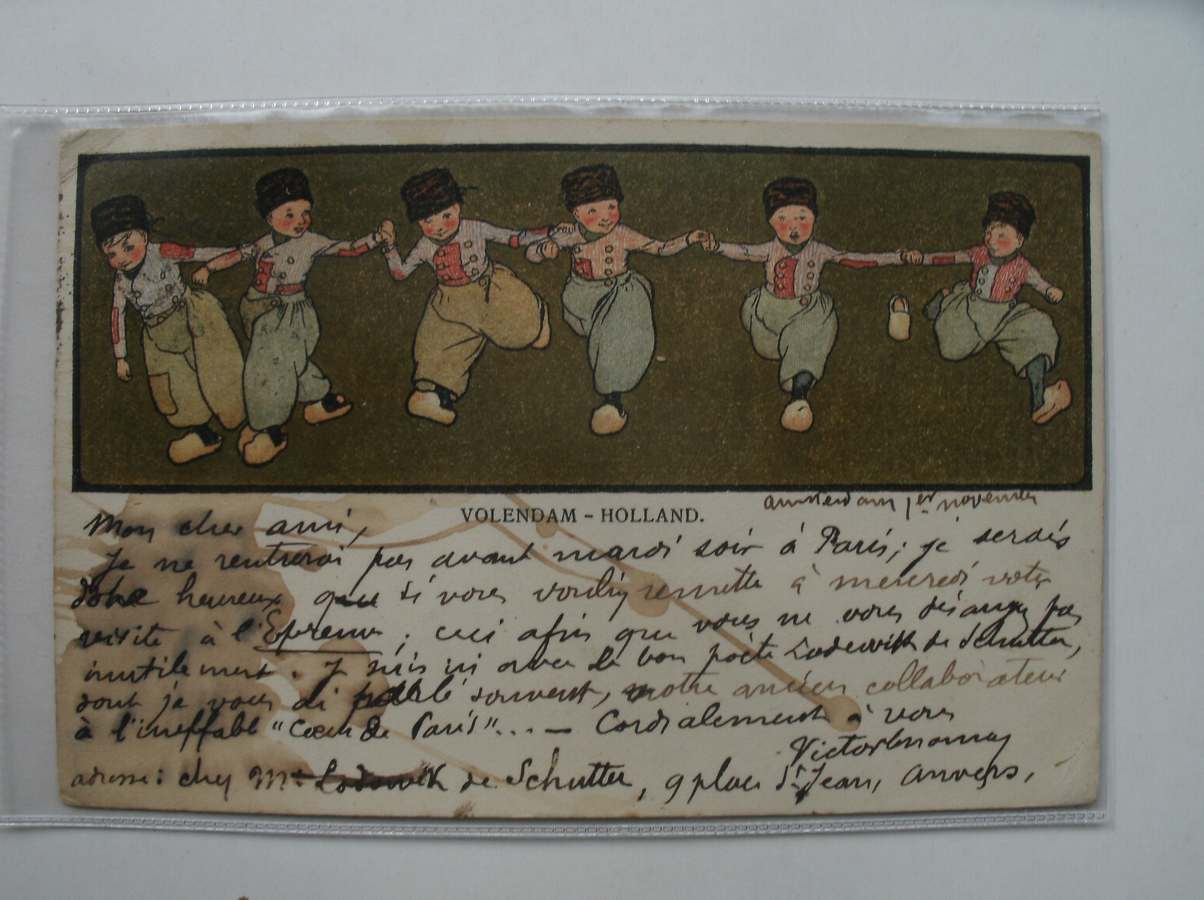 amsterdam 1er novembre
VOLENDAM - HOLLAND.
Mon cher ami,
Je ne rentrerai pas avant mardi soir à Paris; je serais
donc heureux que si vous vouliez remettre à mercredi votre
visite à l'Epreuve; ceci afin que vous ne vous dérangez pas
inutilement. Je suis ici avec le bon poète Lodewijk de Schutter,
dont je vous ai parlé souvent, notre ancien collaborateur
à l'ineffable "Cœur de Paris"... — Cordialement à vous
Victor
adresse: chez Mr. Lodewijk de Schutter, 9 place St Jean, Anvers,